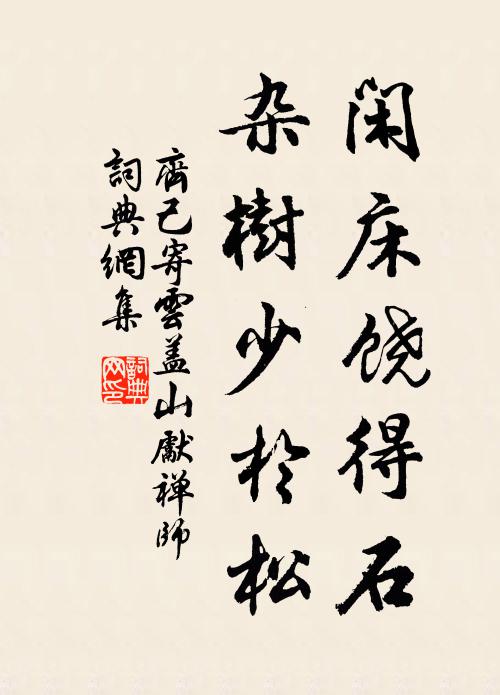 闲床饶得石
杂樹少於松
齊己寄雲盖山獻禅師
詞典網集
詞典网印